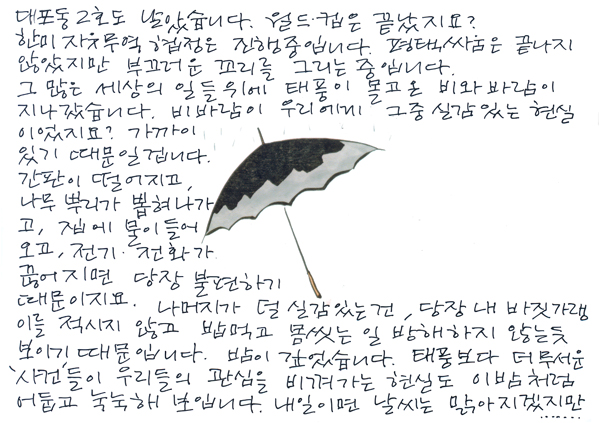 대포동 2호도 날았습니다. 월드·컵은 끝났지요?
한미 자유무역 협정은 진행중입니다. 평택싸움은 끝나지
않았지만 부끄러운 꼬리를 그리는 중입니다.
그 많은 세상의 일들위에 태풍이 몰고온 비와 바람이
지나갔습니다. 비바람이 우리에게 그중 실감있는 현실
이었지요? 가까이
있기 때문일겁니다.
간판이 떨어지고,
나무 뿌리가 뽑혀나가
고, 집에 물이들어
오고, 전기·전화가
끊어지면 당장 불편하기
때문이지요. 나머지가 덜 실감있는건, 당장 내 바짓가랭
이를 적시지 않고 밥먹고 몸씻는 일 방해하지 않는듯
보이기 때문입니다. 밤이 깊었습니다. 태풍보다 더무서운
'사건'들이 우리들의 관심을 비껴가는 현실도 이밤처럼
어둡고 눅눅해 보입니다. 내일이면 날씨는 맑아지겠지만
......